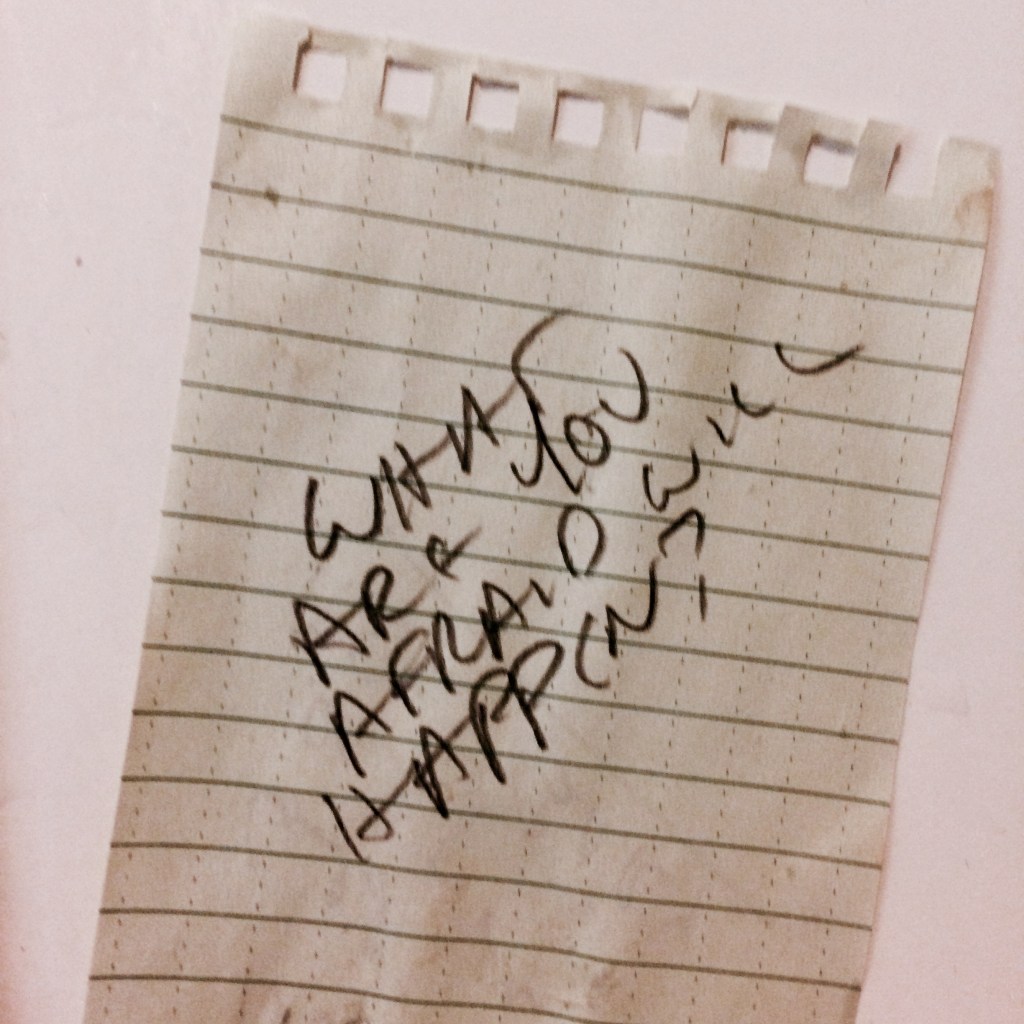 WHAT YOU
ARE
AFRAID WILL
HAPPEN?